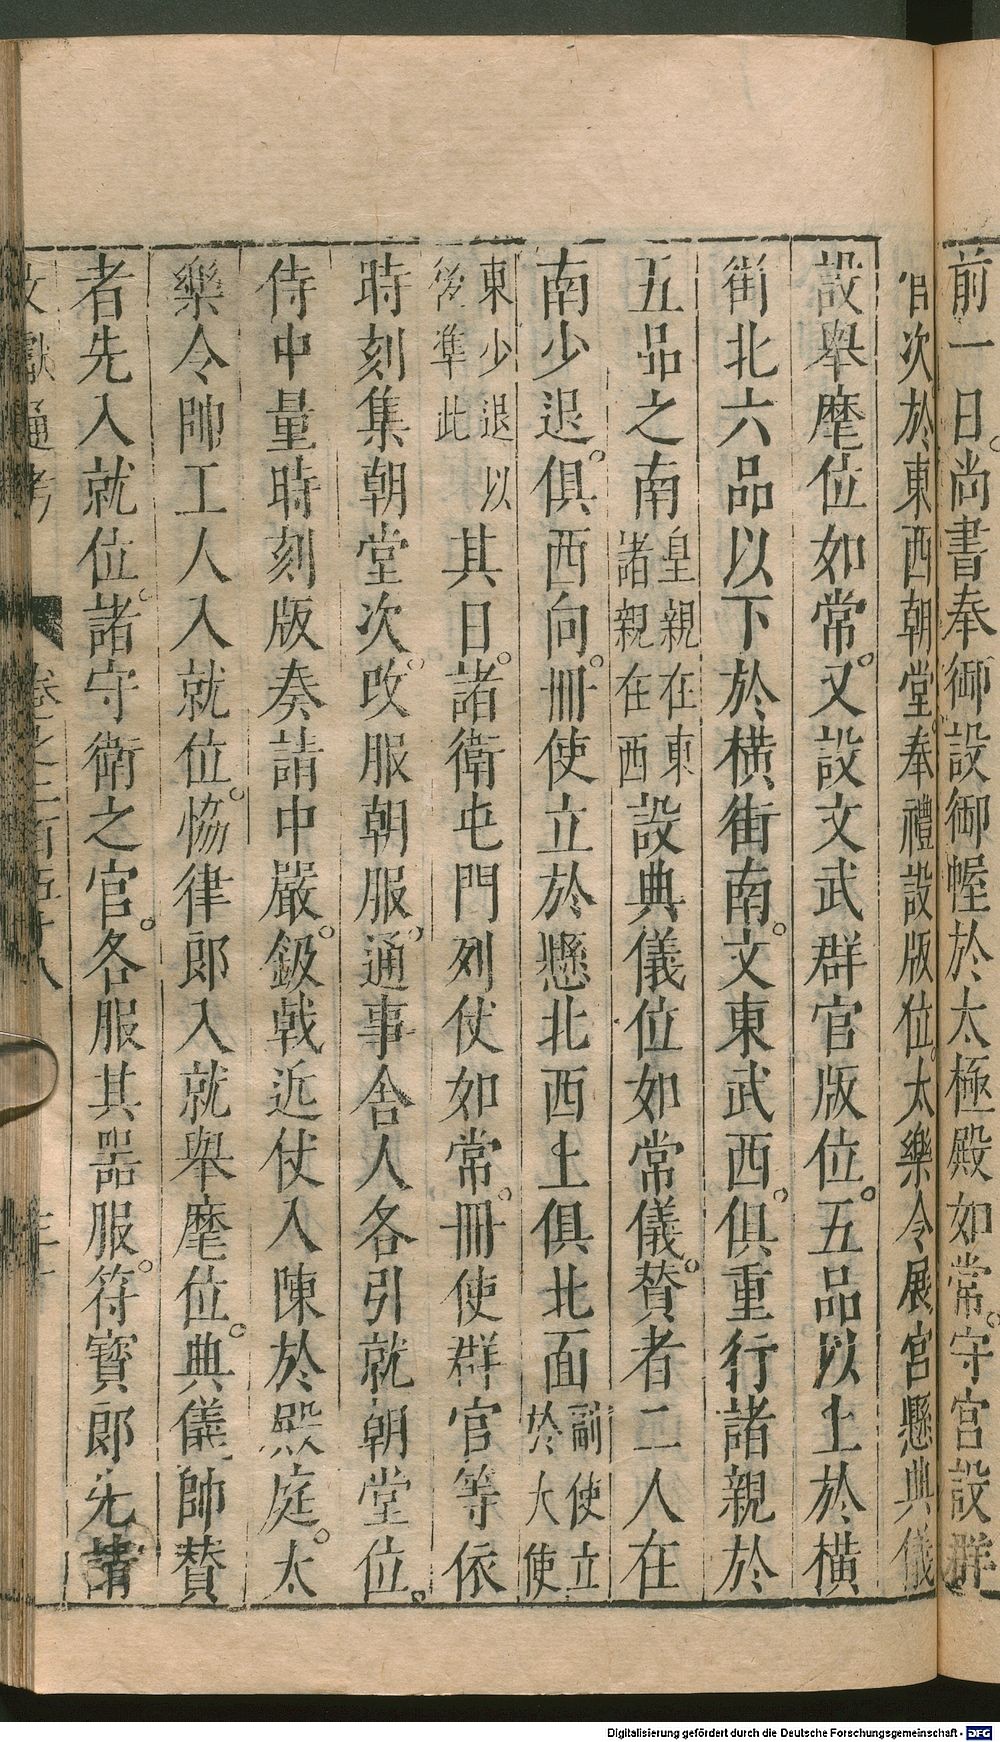 前一日。尚書奉御設御幄於太極殿如常。守宫設群
官次於東西朝堂。奉禮設版位。太樂令展宮懸典儀
設舉麾位如常。又設文武群官版位。五品以上於橫
街北六品以下於橫街南。文東武西。俱重行諸親於
五品之南皇親在東諸親在西設典儀位如常儀。贊者二人在
南少退。俱西向。冊使立於懸北西上俱北面副使立於大使
東少退以後準此其日。諸衛屯門列仗如常。冊使群官等依
時刻集朝堂次。改服朝服。通事舍人各引就朝堂位。
侍中量時刻版奏請中嚴。鈒戟近仗入陳於殿庭。太
樂令帥工人入就位。協律郎入就舉麾位。典儀帥贊
者先入就位。諸守衛之官。各服其器服。符寶郎先請
文獻通考 卷之二百五十八
Digitalisierung gefördert durch die Deutsche Forschungsgemeinschaft - DFG